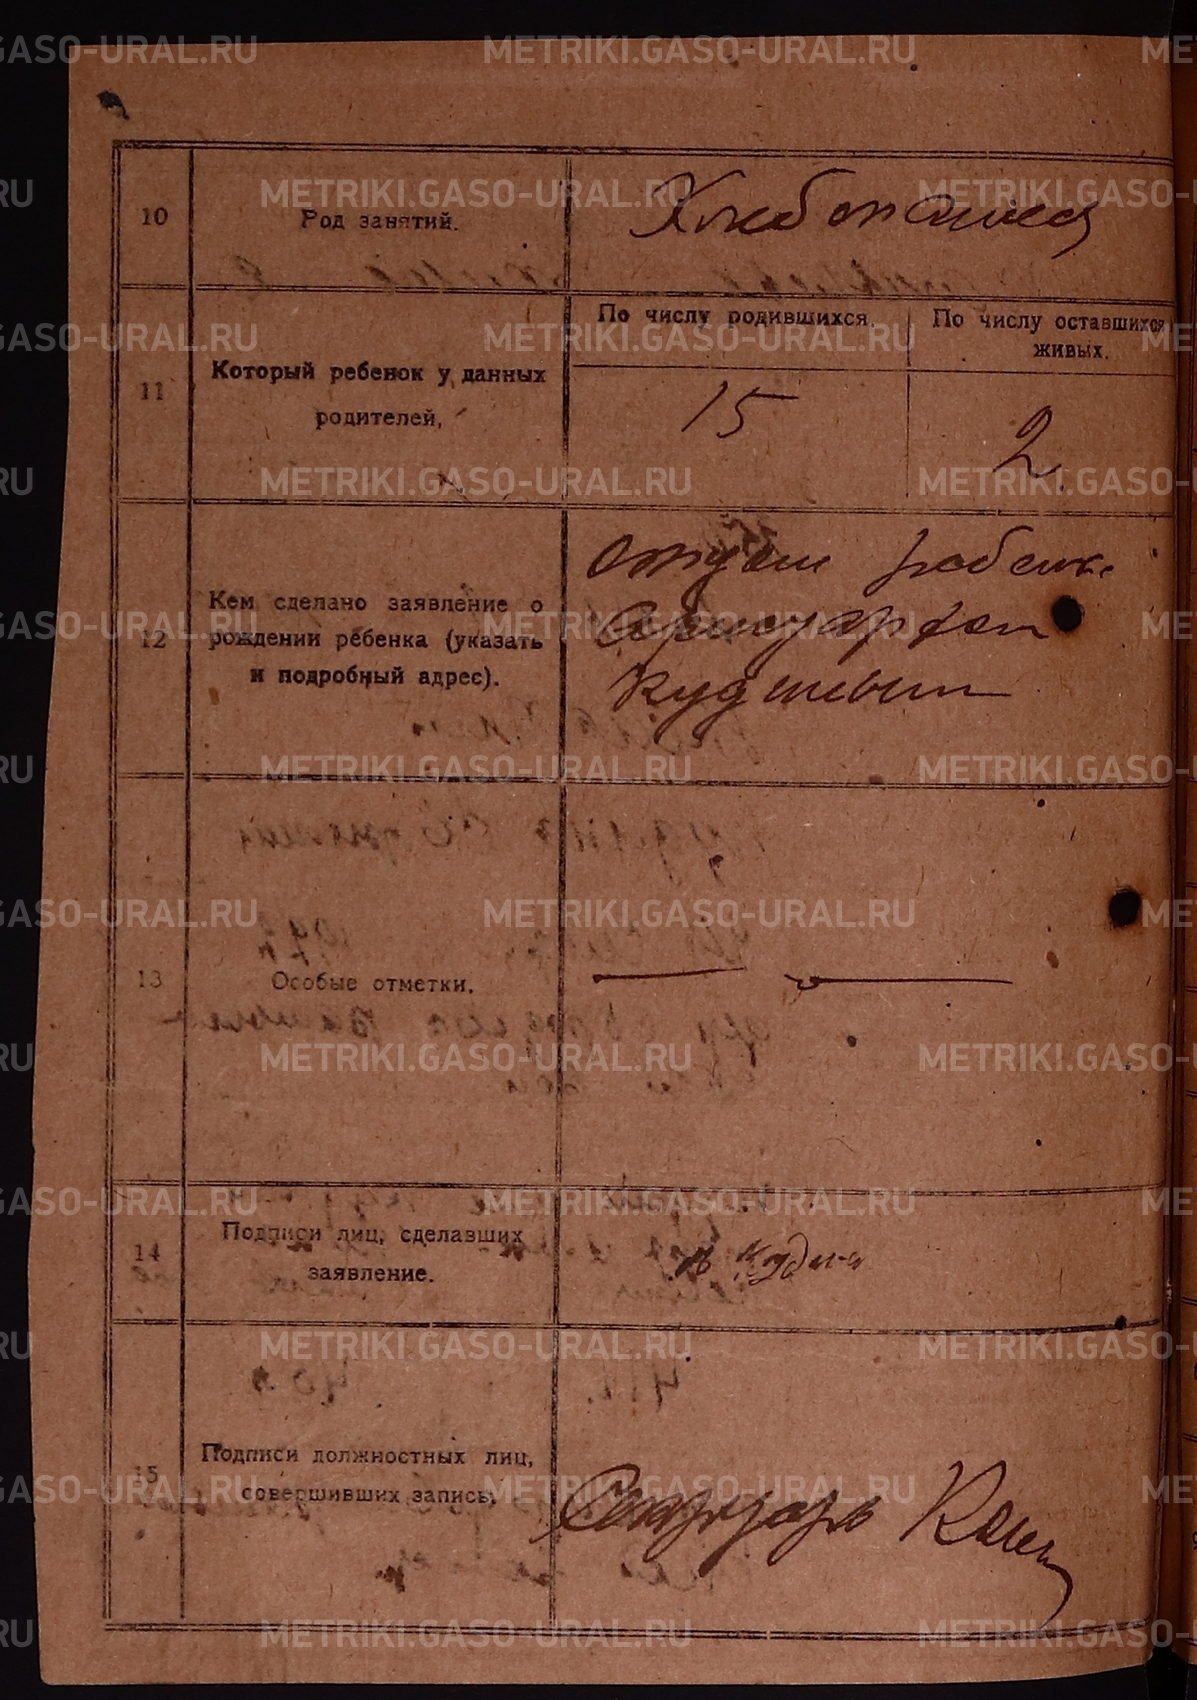 10
Род занятий.
Хлебопашец
11
Который ребенок у данных
родителей.
По числу родившихся.
По числу оставшихся
живых.
15
2.
12
Кем сделано заявление о
рождении ребенка (указать
и подробный адрес).
отцом ребенка
13
Особые отметки.
14
Подписи лиц, сделавших
заявление.
15
Подписи должностных лиц,
совершивших запись.
Секретарь
METRIKI.GASO-URAL.RU